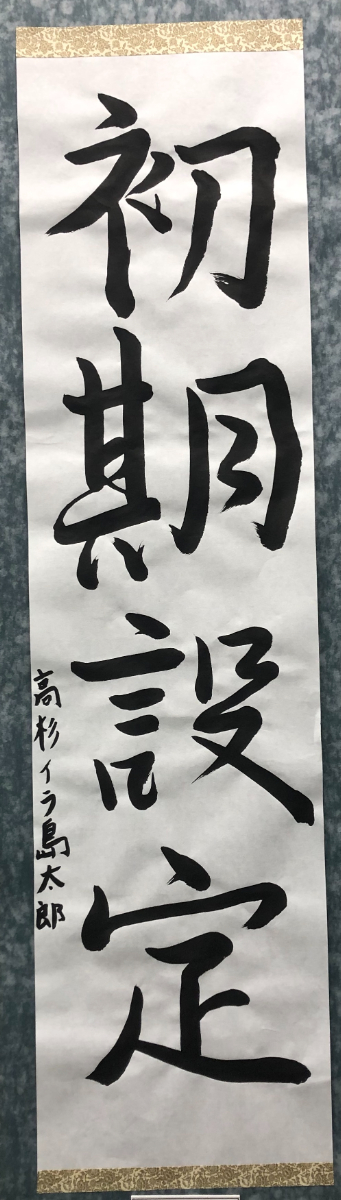 初期設定
高杉イラ島太郎